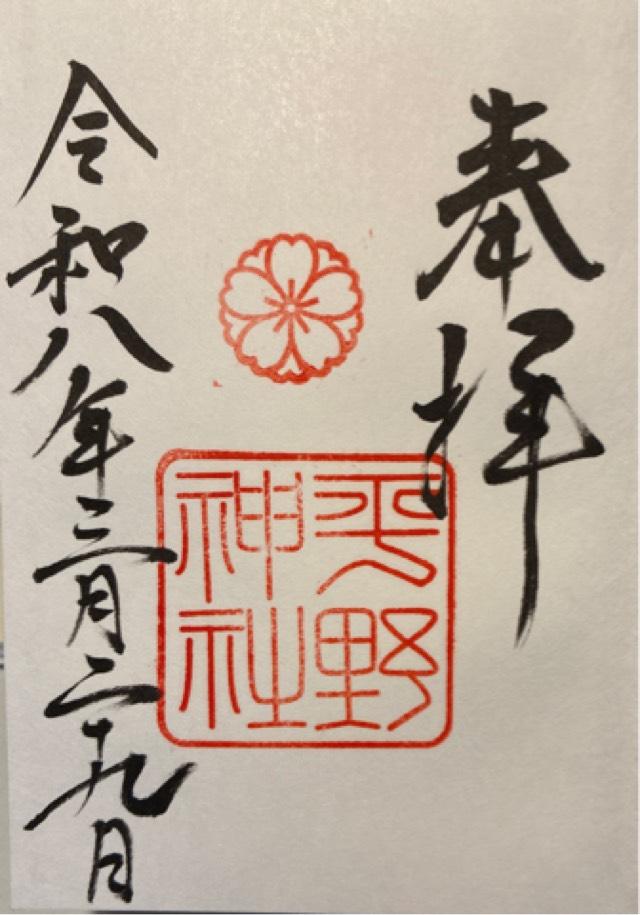 奉拝
平野
神社
令和八年三月二十九日